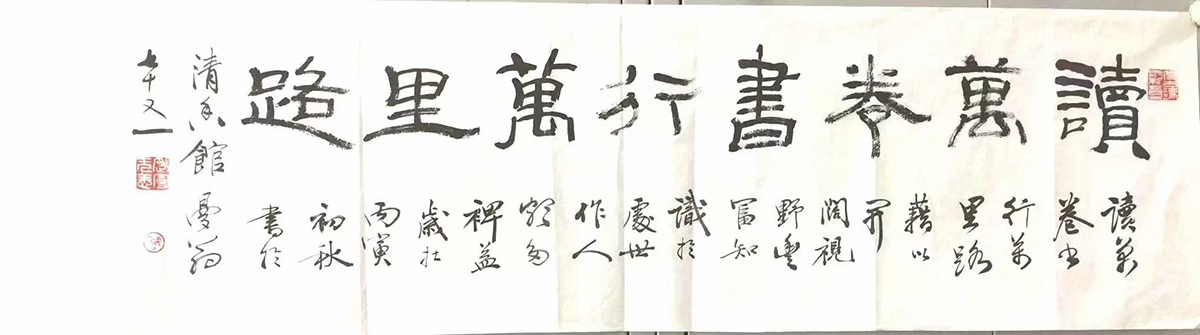 讀萬卷書行萬里路
讀萬
卷书
行萬
里路
藉以
開
闊視
野豐
富知
識於
處世
作人
頗多
裨益
歲在
丙寅
初秋
書於
清香館翁
又一